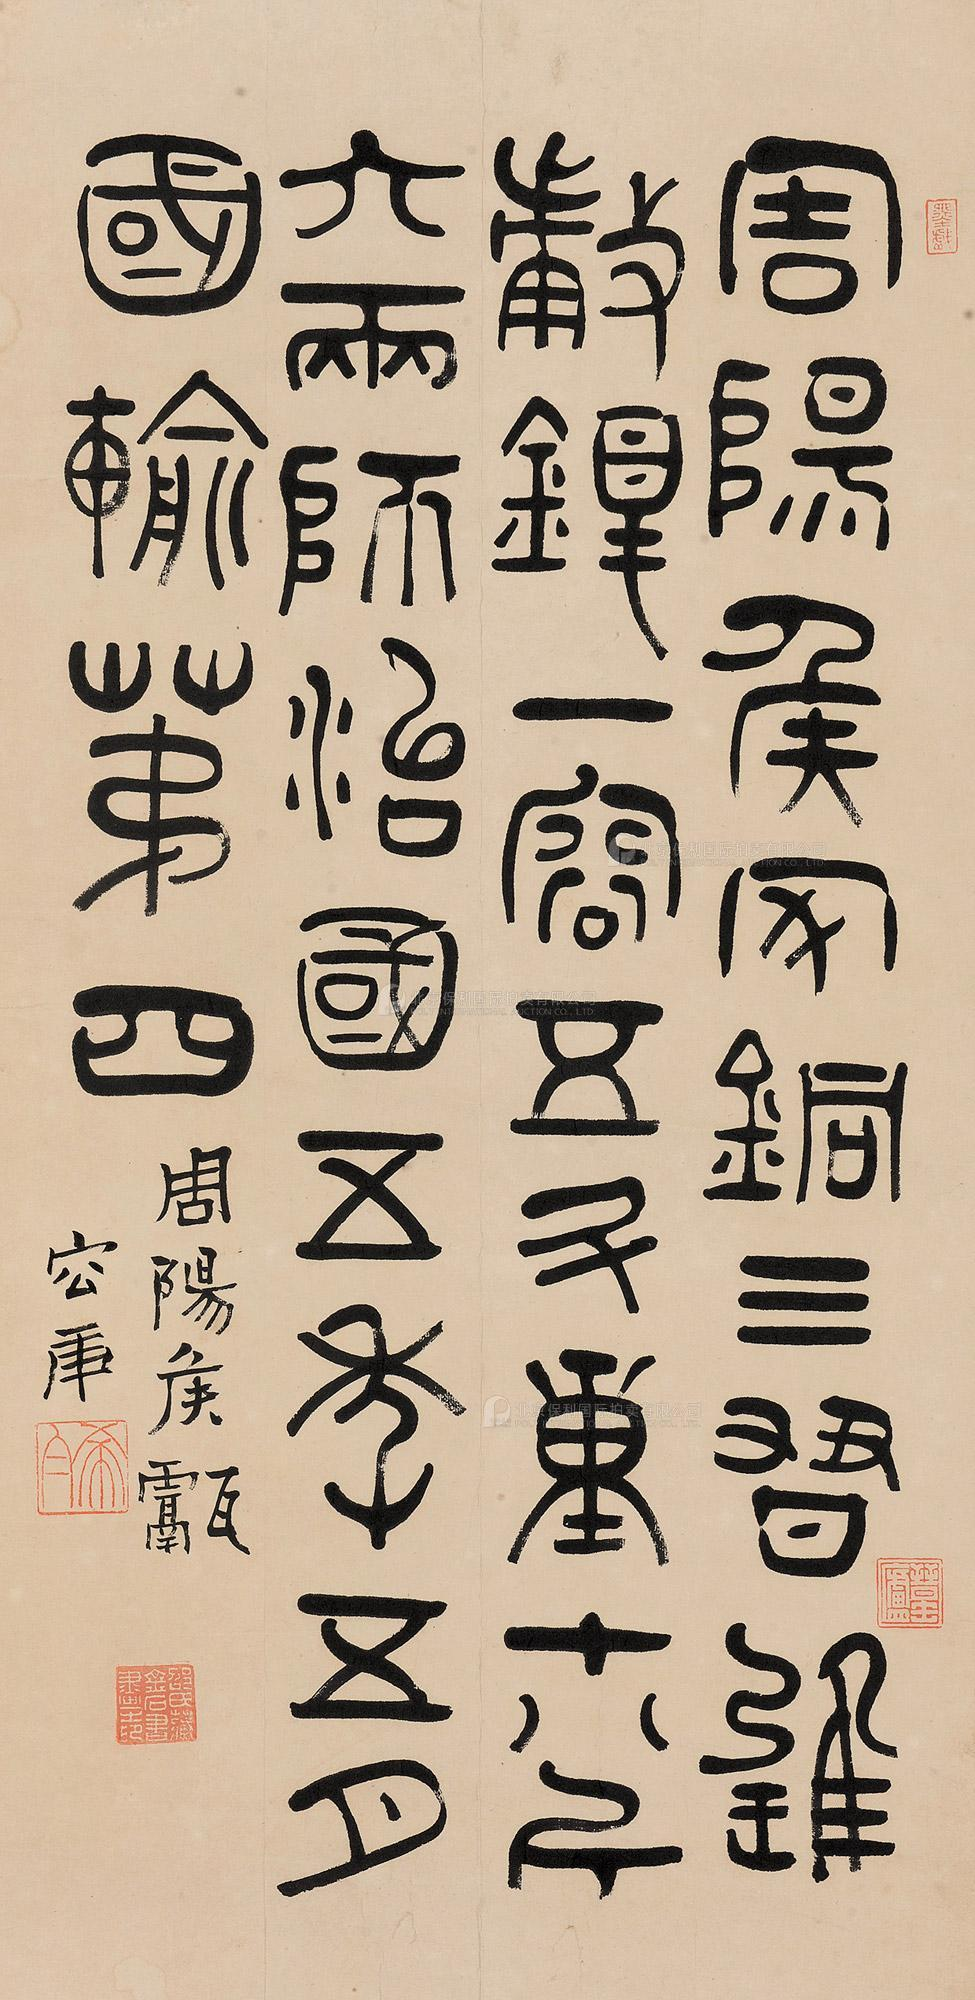 周陽侯家銅三習
一容五斗重十八斤
六兩師治國五年五月
國輸第四
周陽侯甗
容庚
希白